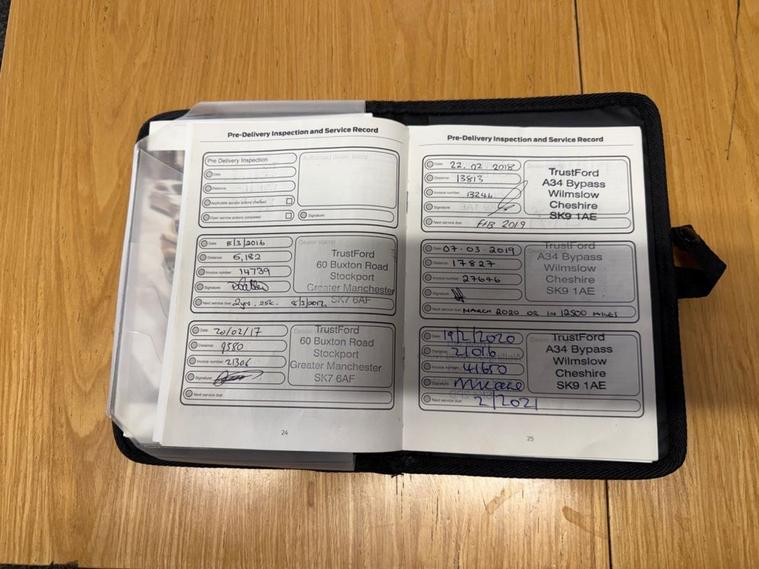 Pre-Delivery Inspection and Service Record
Pre Delivery Inspection
Date
Distance
Applicable service actions checked
Open service actions completed
Signature
Date 8/3/2016
Distance 6,182
Invoice number 14739
Signature
Next service due 2yrs. 25k. 8/3/2017.
TrustFord
60 Buxton Road
Stockport
Greater Manchester
SK7 6AF
Date 20/02/17
Distance 9380
Invoice number 21306
Signature
Next service due
TrustFord
60 Buxton Road
Stockport
Greater Manchester
SK7 6AF
24
Pre-Delivery Inspection and Service Record
Date 22.02.2018
Distance 13813
Invoice number 13246
Signature
Next service due FEB 2019
TrustFord
A34 Bypass
Wilmslow
Cheshire
SK9 1AE
Date 07-03-2019
Distance 17827
Invoice number 27646
Signature
Next service due MARCH 2020 OR IN 12500 MILES
TrustFord
A34 Bypass
Wilmslow
Cheshire
SK9 1AE
Date 19/2/2020
Distance 21016
Invoice number 41650
Signature
Next service due 2/2021
TrustFord
A34 Bypass
Wilmslow
Cheshire
SK9 1AE
25